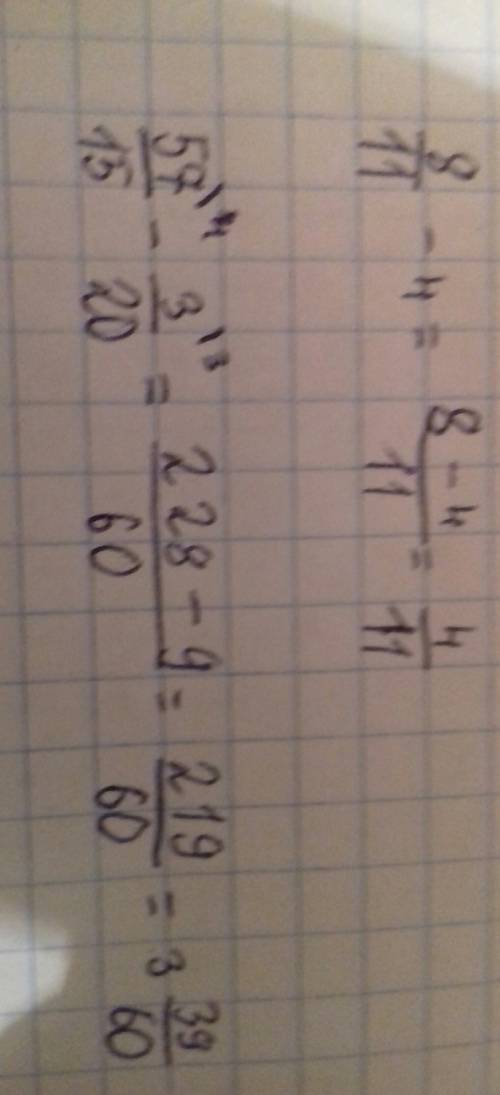 8/11 - 4 = 8-4/11 = 4/11
57\4/15 - 3\3/20 = 228-9/60 = 219/60 = 3 39/60